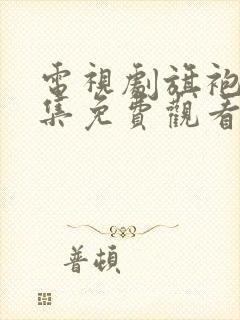 電視劇旗袍
集免費觀看
普頓